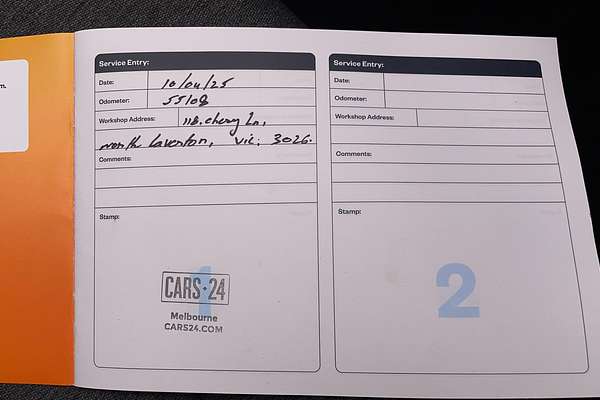 m.
Service Entry:
Date: 10/04/25
Odometer: 55108
Workshop Address: 118. cherry Ln,
north Laverton, Vic. 3026.
Comments:
Stamp:
1
CARS·24
Melbourne
CARS24.COM
Service Entry:
Date:
Odometer:
Workshop Address:
Comments:
Stamp:
2